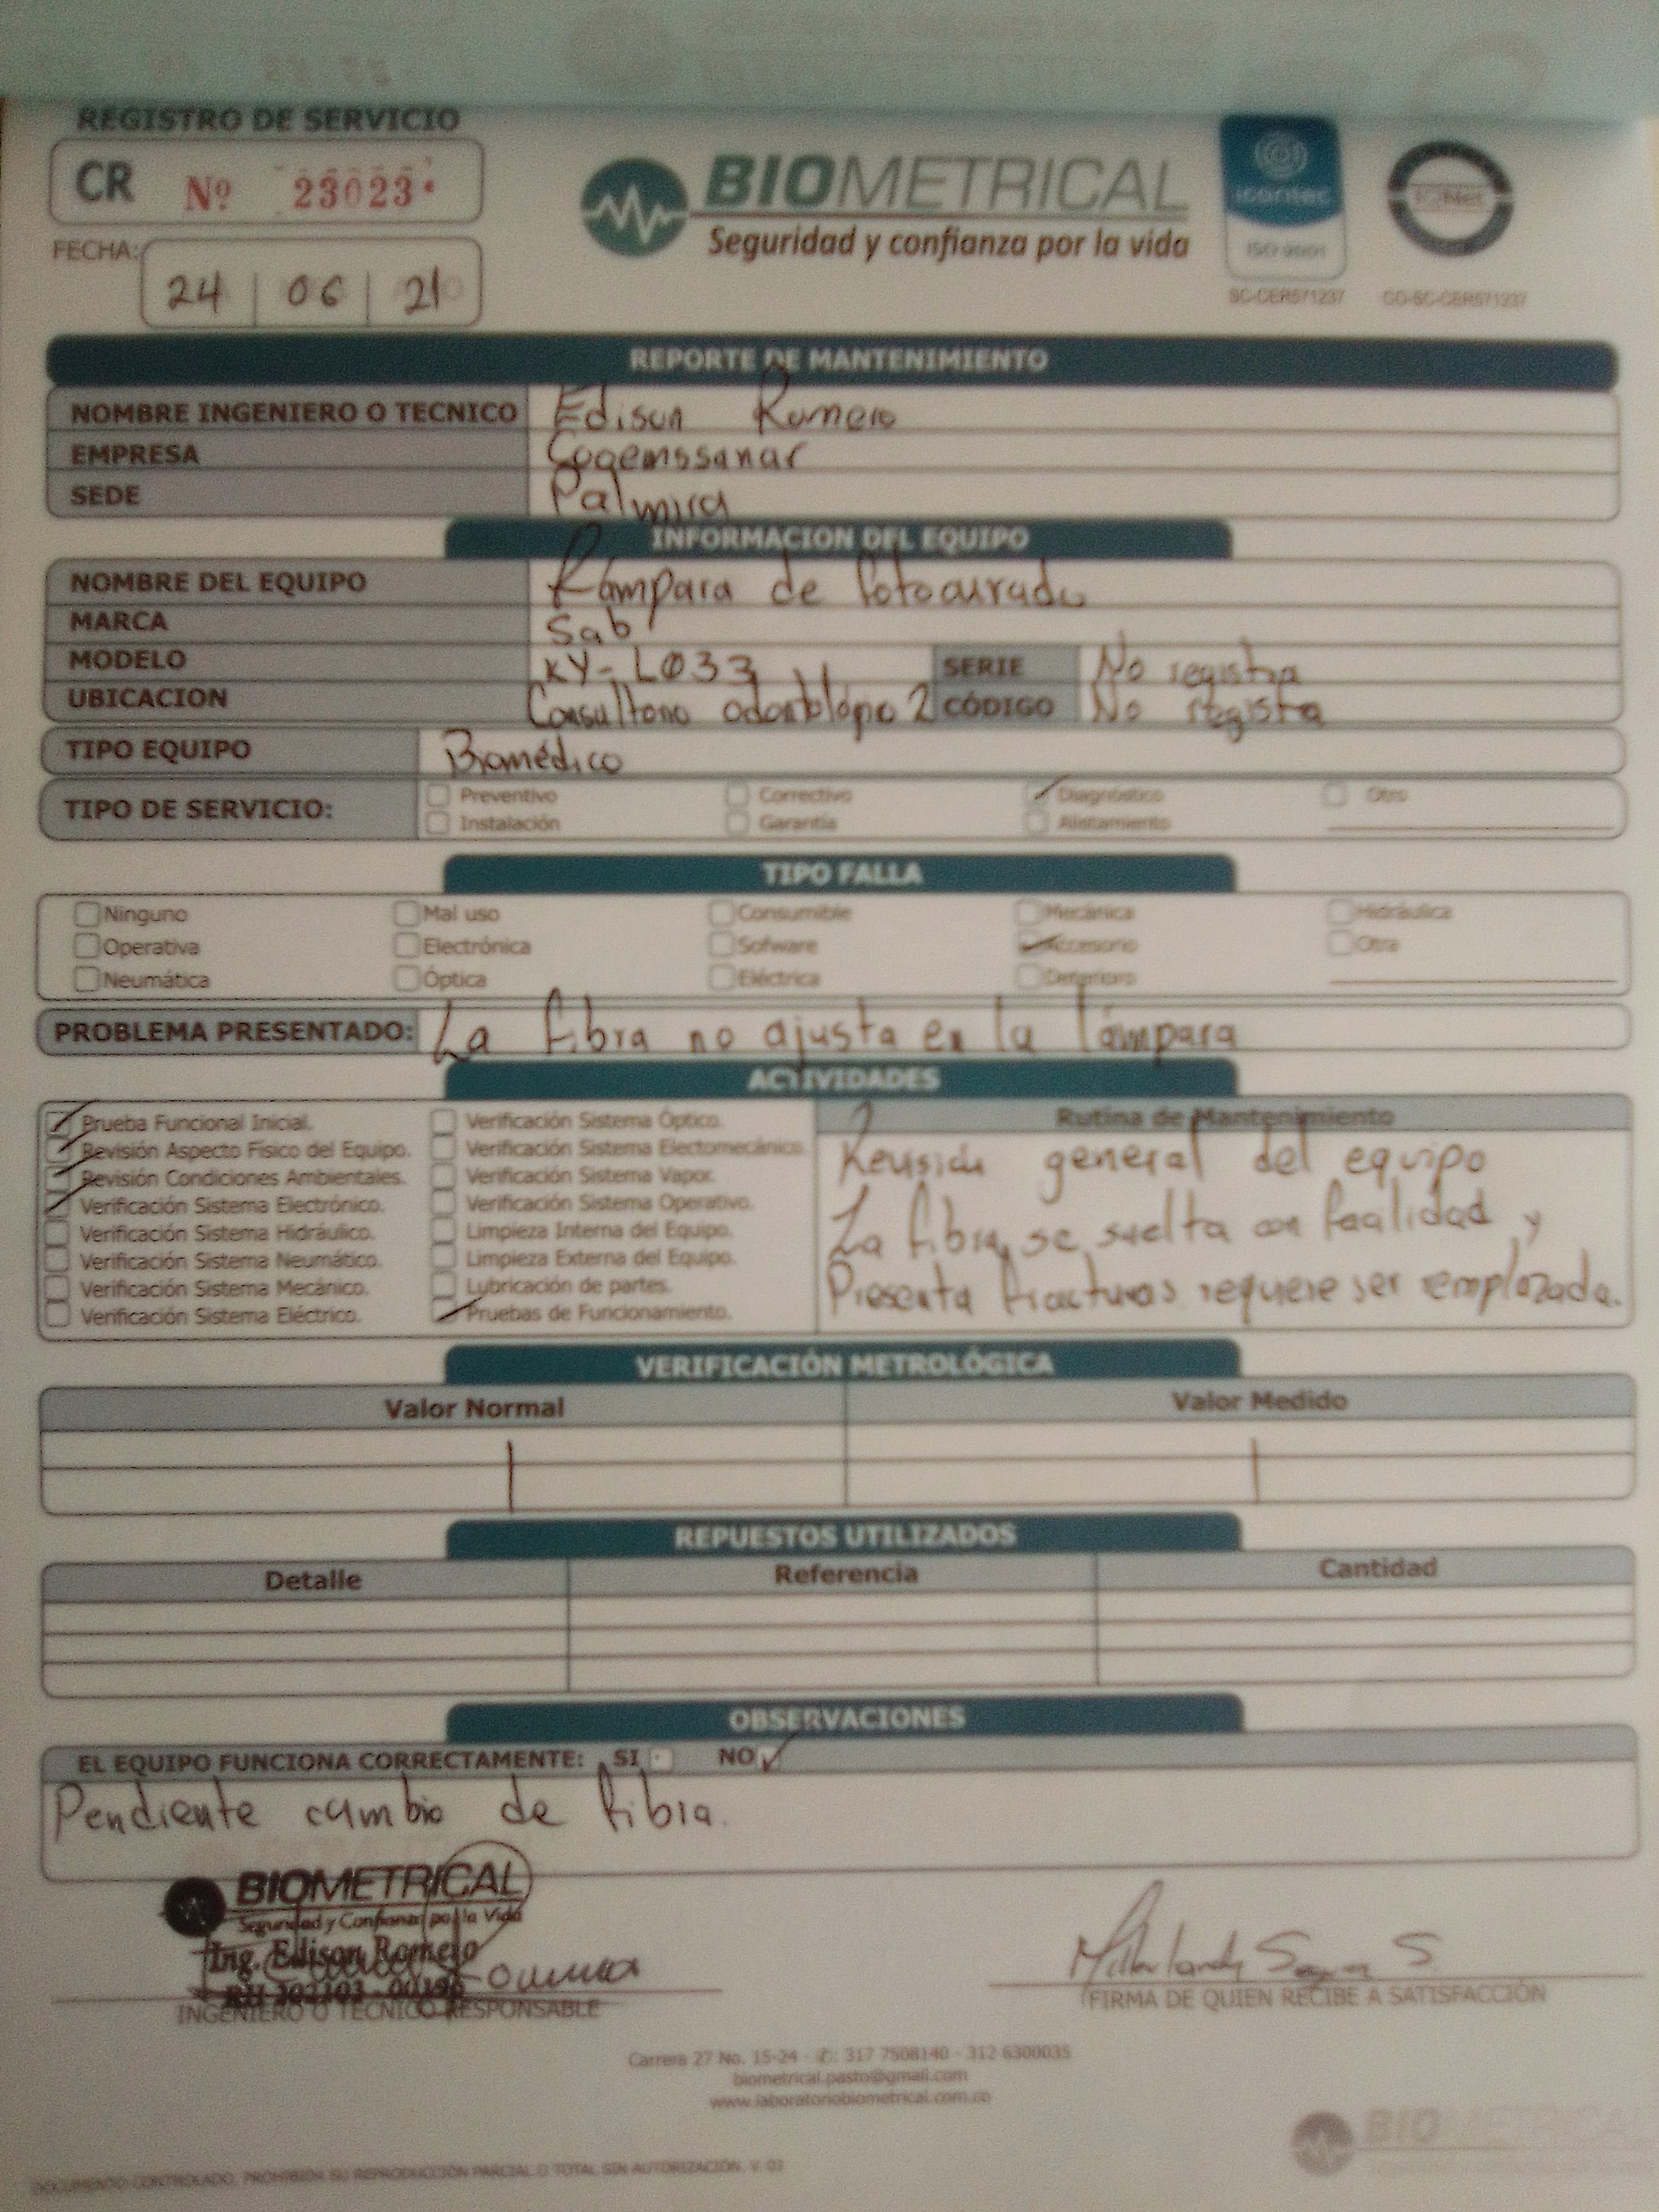 REGISTRO DE SERVICIO
CR Nº 23023
BIOMETRICAL
Seguridad y confianza por la vida
icontec
ISO 9001
IQNet
SC-CER571237 CO-SC-CER571237
FECHA: 24 | 06 | 21
REPORTE DE MANTENIMIENTO
NOMBRE INGENIERO O TECNICO Edison Romero
EMPRESA Cogemssanar
SEDE Palmira
INFORMACION DEL EQUIPO
NOMBRE DEL EQUIPO Lámpara de fotocurado
MARCA Sab
MODELO KY-L033 SERIE No registra
UBICACION Consultorio odontológico 2 CÓDIGO No registra
TIPO EQUIPO Biomédico
TIPO DE SERVICIO: Preventivo Correctivo Diagnóstico Otro
Instalación Garantía Alistamiento
TIPO FALLA
Ninguno Mal uso Consumible Mecánica Hidráulica
Operativa Electrónica Sofware Accesorio Otra
Neumática Óptica Eléctrica Deterioro
PROBLEMA PRESENTADO: La fibra no ajusta en la lámpara
ACTIVIDADES
Prueba Funcional Inicial.
Revisión Aspecto Fisico del Equipo.
Revisión Condiciones Ambientales.
Verificación Sistema Electrónico.
Verificación Sistema Hidráulico.
Verificación Sistema Neumático.
Verificación Sistema Mecánico.
Verificación Sistema Eléctrico.
Verificación Sistema Óptico.
Verificación Sistema Electomecánico.
Verificación Sistema Vapor.
Verificación Sistema Operativo.
Limpieza Interna del Equipo.
Limpieza Externa del Equipo.
Lubricación de partes.
Pruebas de Funcionamiento.
Rutina de Mantenimiento
Revisión general del equipo
La fibra se suelta con facilidad y
Presenta fracturas requiere ser remplazada.
VERIFICACIÓN METROLÓGICA
Valor Normal Valor Medido
REPUESTOS UTILIZADOS
Detalle Referencia Cantidad
OBSERVACIONES
EL EQUIPO FUNCIONA CORRECTAMENTE: SI NO
Pendiente cambio de fibra.
BIOMETRICAL
Seguridad y Confianza por la Vida
Ing. Edison Romero
INGENIERO O TECNICO RESPONSABLE
FIRMA DE QUIEN RECIBE A SATISFACCIÓN
Carrera 27 No. 15-24 - ✆: 317 7508140 - 312 6300035
biometrical.pasto@gmail.com
www.laboratoriobiometrical.com.co
BIOMETRICAL
DOCUMENTO CONTROLADO. PROHIBIDA SU REPRODUCCIÓN PARCIAL O TOTAL SIN AUTORIZACIÓN. V. 03